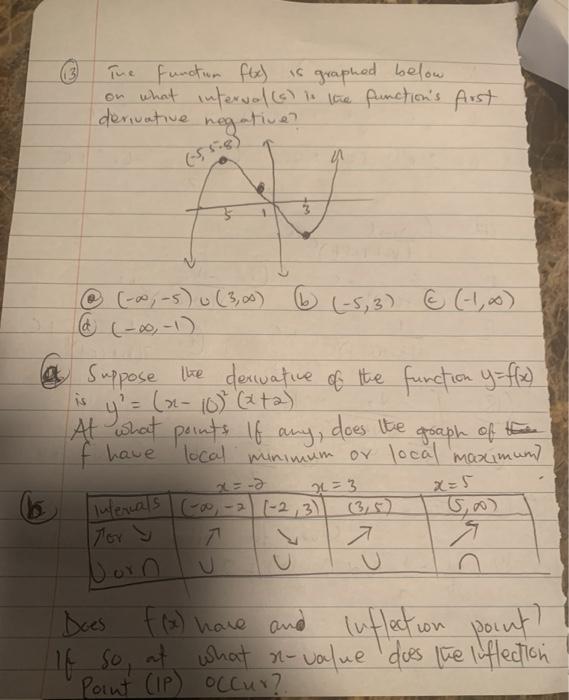 13 The function f(x) is graphed below
on what interval(s) is the function's first
derivative negative?
(-5, 5.8)
5 1 3
(a) (-∞, -5) ∪ (3, ∞) (b) (-5, 3) (c) (-1, ∞)
(d) (-∞, -1)
Suppose the derivative of the function y=f(x)
is y' = (x - 10)² (x+2)
At what points if any, does the graph of
f have local minimum or local maximum?
x = -2 x = 3 x = 5
Intervals (-∞, -2 (-2, 3) (3, 5) (5, ∞)
↗ or ↘ ↗ ↘ ↗ ↗
∪ or ∩ ∪ ∪ ∪ ∩
Does f(x) have and inflection point?
If so, at what x-value does the inflection
Point (IP) occur?